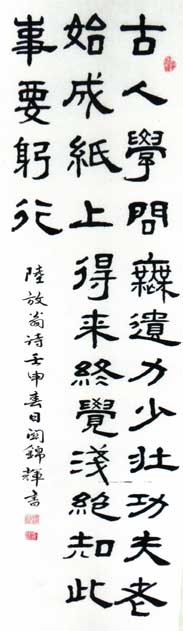 古人學問無遺力少壯功夫老
始成紙上得来終覺淺絕知此
事要躬行
陸放翁诗壬申春日閻錦輝書